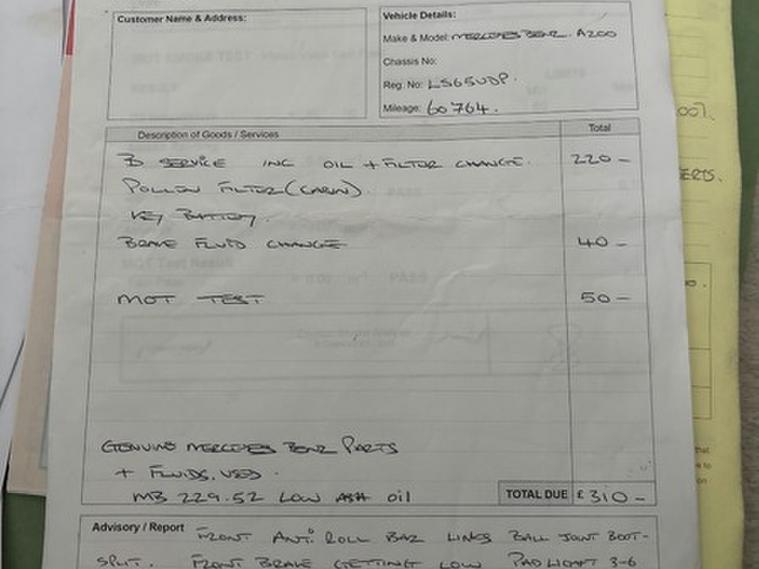 Customer Name & Address:
Vehicle Details:
Make & Model: MERCEDES BENZ. A200
Chassis No:
Reg. No: LS65UDP.
Mileage: 60764.
Description of Goods / Services
Total
B SERVICE INC OIL + FILTER CHANGE. 220 -
POLLEN FILTER (CABIN).
KEY BATTERY.
BRAKE FLUID CHANGE 40 -
MOT TEST 50 -
GENUINE MERCEDES BENZ PARTS
+ FLUIDS, USED.
MB 229.52 LOW ASH OIL
TOTAL DUE £ 310 -
Advisory / Report FRONT ANTI ROLL BAR LINKS BALL JOINT BOOT-
SPLIT. FRONT BRAKE GETTING LOW PAD LIGHT 3-6